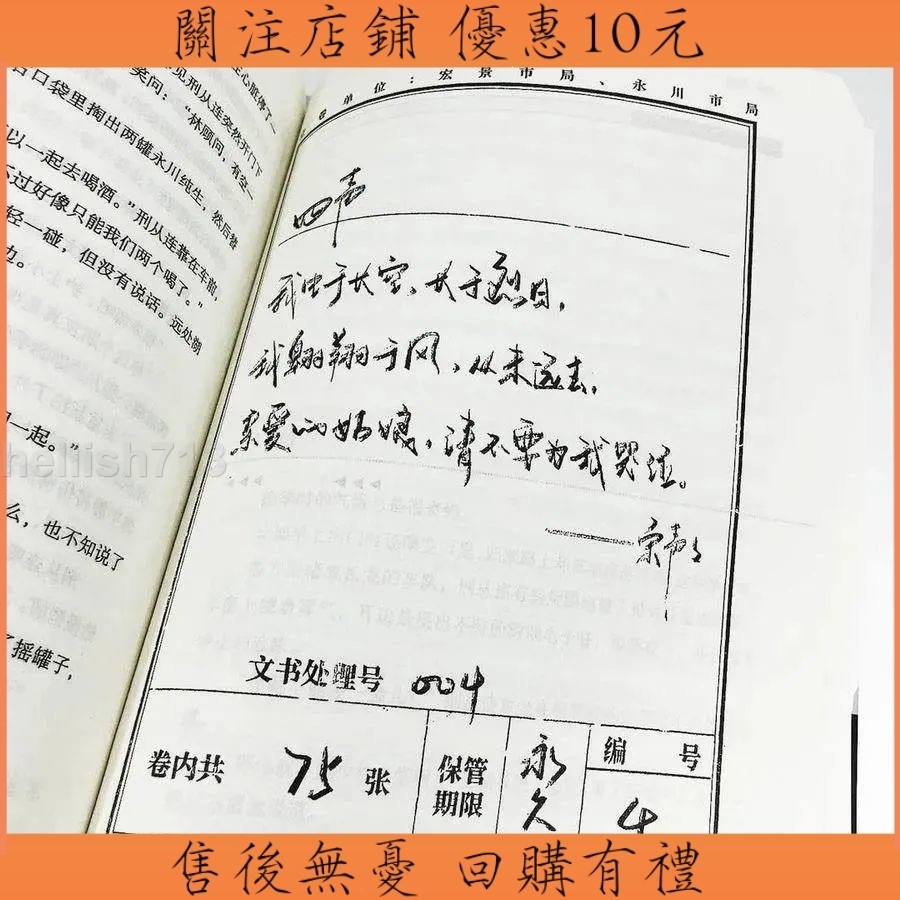 關注店鋪 優惠10元
见刑从连突然开门下
笑问：“林顾问，有空一
口袋里掏出两罐永川纯生，然后
以一起去喝酒。”刑从连靠在车
过好像只能我们两个喝了。”
轻一碰，但没有说话。远处
一起。”
么，也不知说了
了摇罐子，
卷单位：宏景市局、永川市局
四声
我生于长空、长于烈日，
我翱翔于风、从未远去，
亲爱的姑娘，请不要为我哭泣。
——宋声声
文书处理号 004
卷内共 75 张
保管期限 永久
编号 4
hellish718
售後無憂 回購有禮